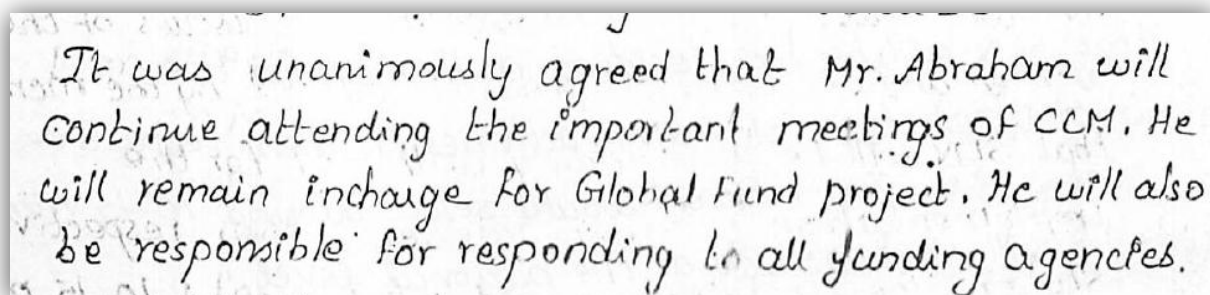 It was unanimously agreed that Mr. Abraham will
continue attending the important meetings of CCM. He
will remain incharge for Global Fund project. He will also
be responsible for responding to all funding agencies.